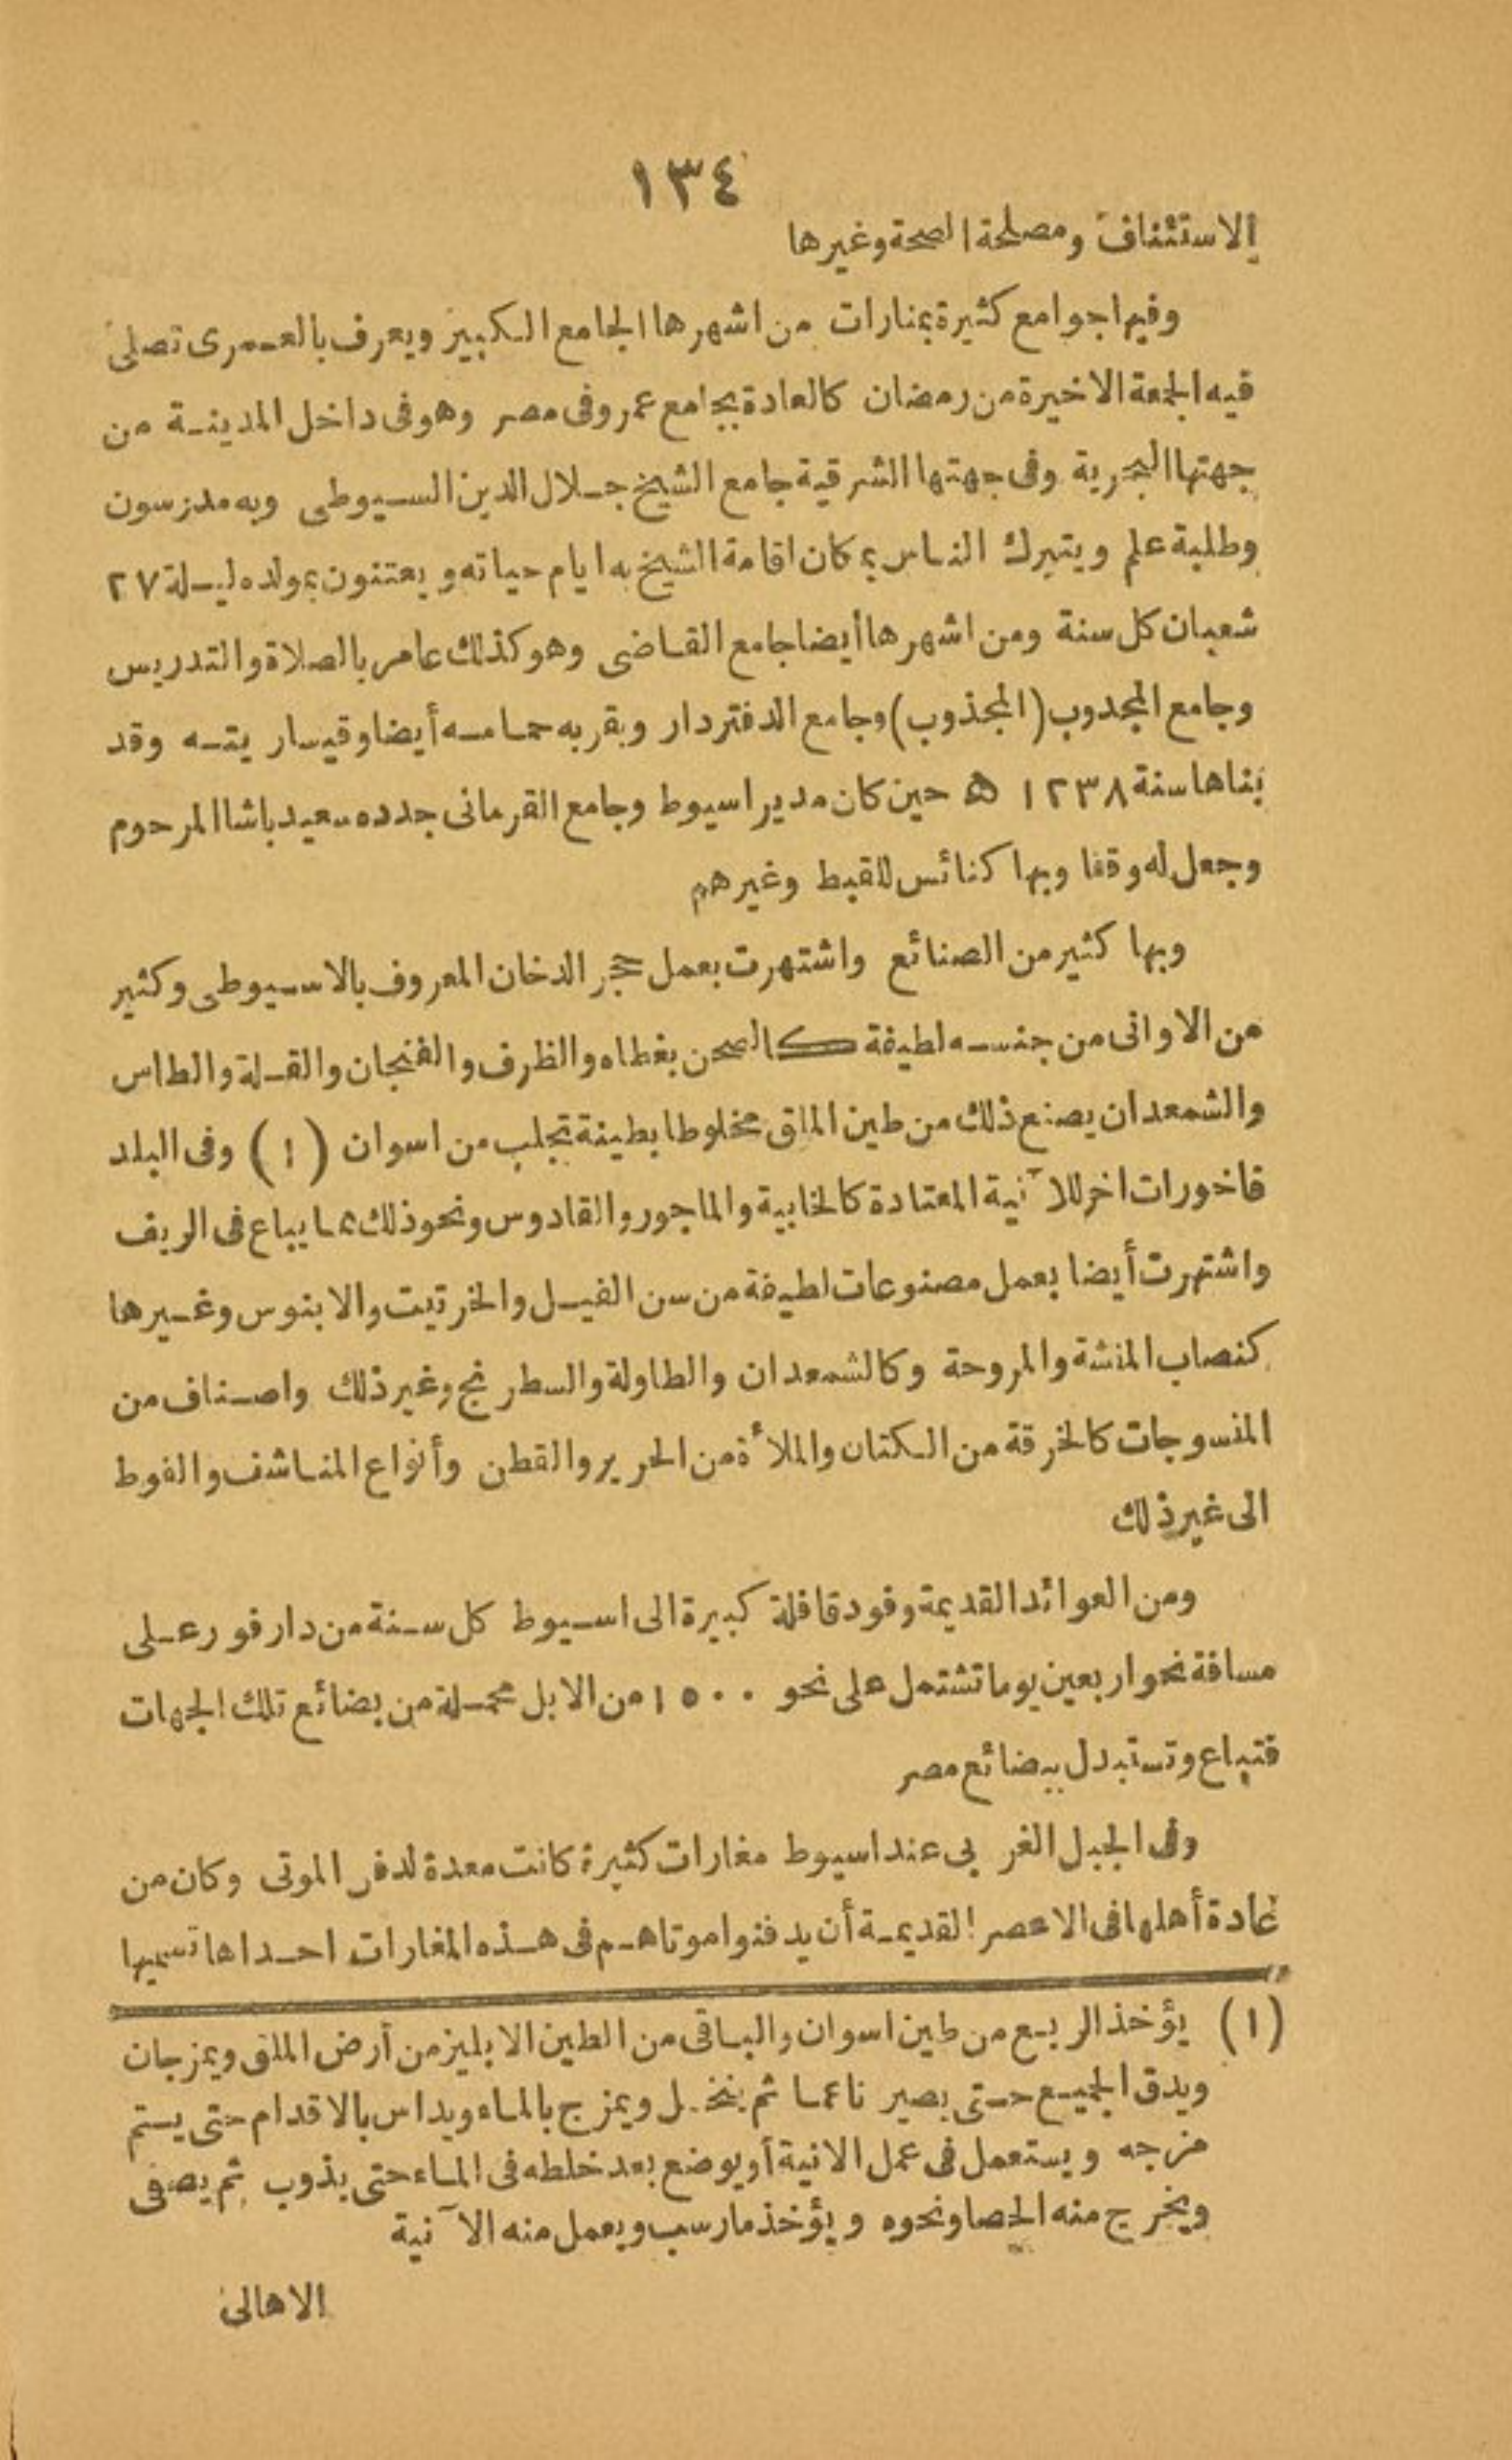 ١٣٤
الاستئناف ومصلحة الصحة وغيرها
وفيها جوامع كثيرة بمنارات من اشهرها الجامع الكبير ويعرف بالعمرى تصلى
فيه الجمعة الاخيرة من رمضان كالعادة بجامع عمرو فى مصر وهو فى داخل المدينة من
جهتها البحرية وفى جهتها الشرقية جامع الشيخ جلال الدين السيوطى وبه مدرسون
وطلبة علم ويتبرك الناس بمكان اقامة الشيخ به ايام حياته ويعتنون بمولده ليلة ٢٧
شعبان كل سنة ومن اشهرها أيضا جامع القاضى وهو كذلك عامر بالصلاة والتدريس
وجامع المجدوب (المجذوب) وجامع الدفتردار وبقربه حمامه أيضا وقيساريته وقد
بناها سنة ١٢٣٨ ه حين كان مدير اسيوط وجامع القرمانى جدده سعيد باشا المرحوم
وجعل له وقفا وبها كنائس للقبط وغيرهم
وبها كثير من الصنائع واشتهرت بعمل حجر الدخان المعروف بالاسيوطى وكثير
من الاوانى من جنسه لطيفة كالصحن بغطاه والظرف والفنجان والقلة والطاس
والشمعدان يصنع ذلك من طين الملق مخلوطا بطينة تجلب من اسوان (١) وفى البلد
فاخورات اخر للآنية المعتادة كالخابية والماجور والقادوس ونحو ذلك مما يباع فى الريف
واشتهرت أيضا بعمل مصنوعات لطيفة من سن الفيل والخرتيت والابنوس وغيرها
كنصاب المنشة والمروحة وكالشمعدان والطاولة والسطرنج وغير ذلك واصناف من
المنسوجات كالخرقة من الكتان والملأة من الحرير والقطن وأنواع المناشف والفوط
الى غير ذلك
ومن العوائد القديمة وفود قافلة كبيرة الى اسيوط كل سنة من دارفور على
مسافة نحو اربعين يوما تشتمل على نحو ١٥٠٠ من الابل محملة من بضائع تلك الجهات
فتباع وتستبدل ببضائع مصر
وفى الجبل الغربى عند اسيوط مغارات كثيرة كانت معدة لدفن الموتى وكان من
عادة أهلها فى الاعصر القديمة أن يدفنوا موتاهم فى هذه المغارات احداها تسميها
(١) يؤخذ الربع من طين اسوان والباقى من الطين الابليز من أرض الملق ويمزجان
ويدق الجميع حتى يصير ناعما ثم ينخل ويمزج بالماء ويداس بالاقدام حتى يستم
مزجه ويستعمل فى عمل الانية أو يوضع بعد خلطه فى الماء حتى يذوب ثم يصفى
ويخرج منه الحصا ونحوه ويؤخذ مارسب ويعمل منه الآنية
الاهالى